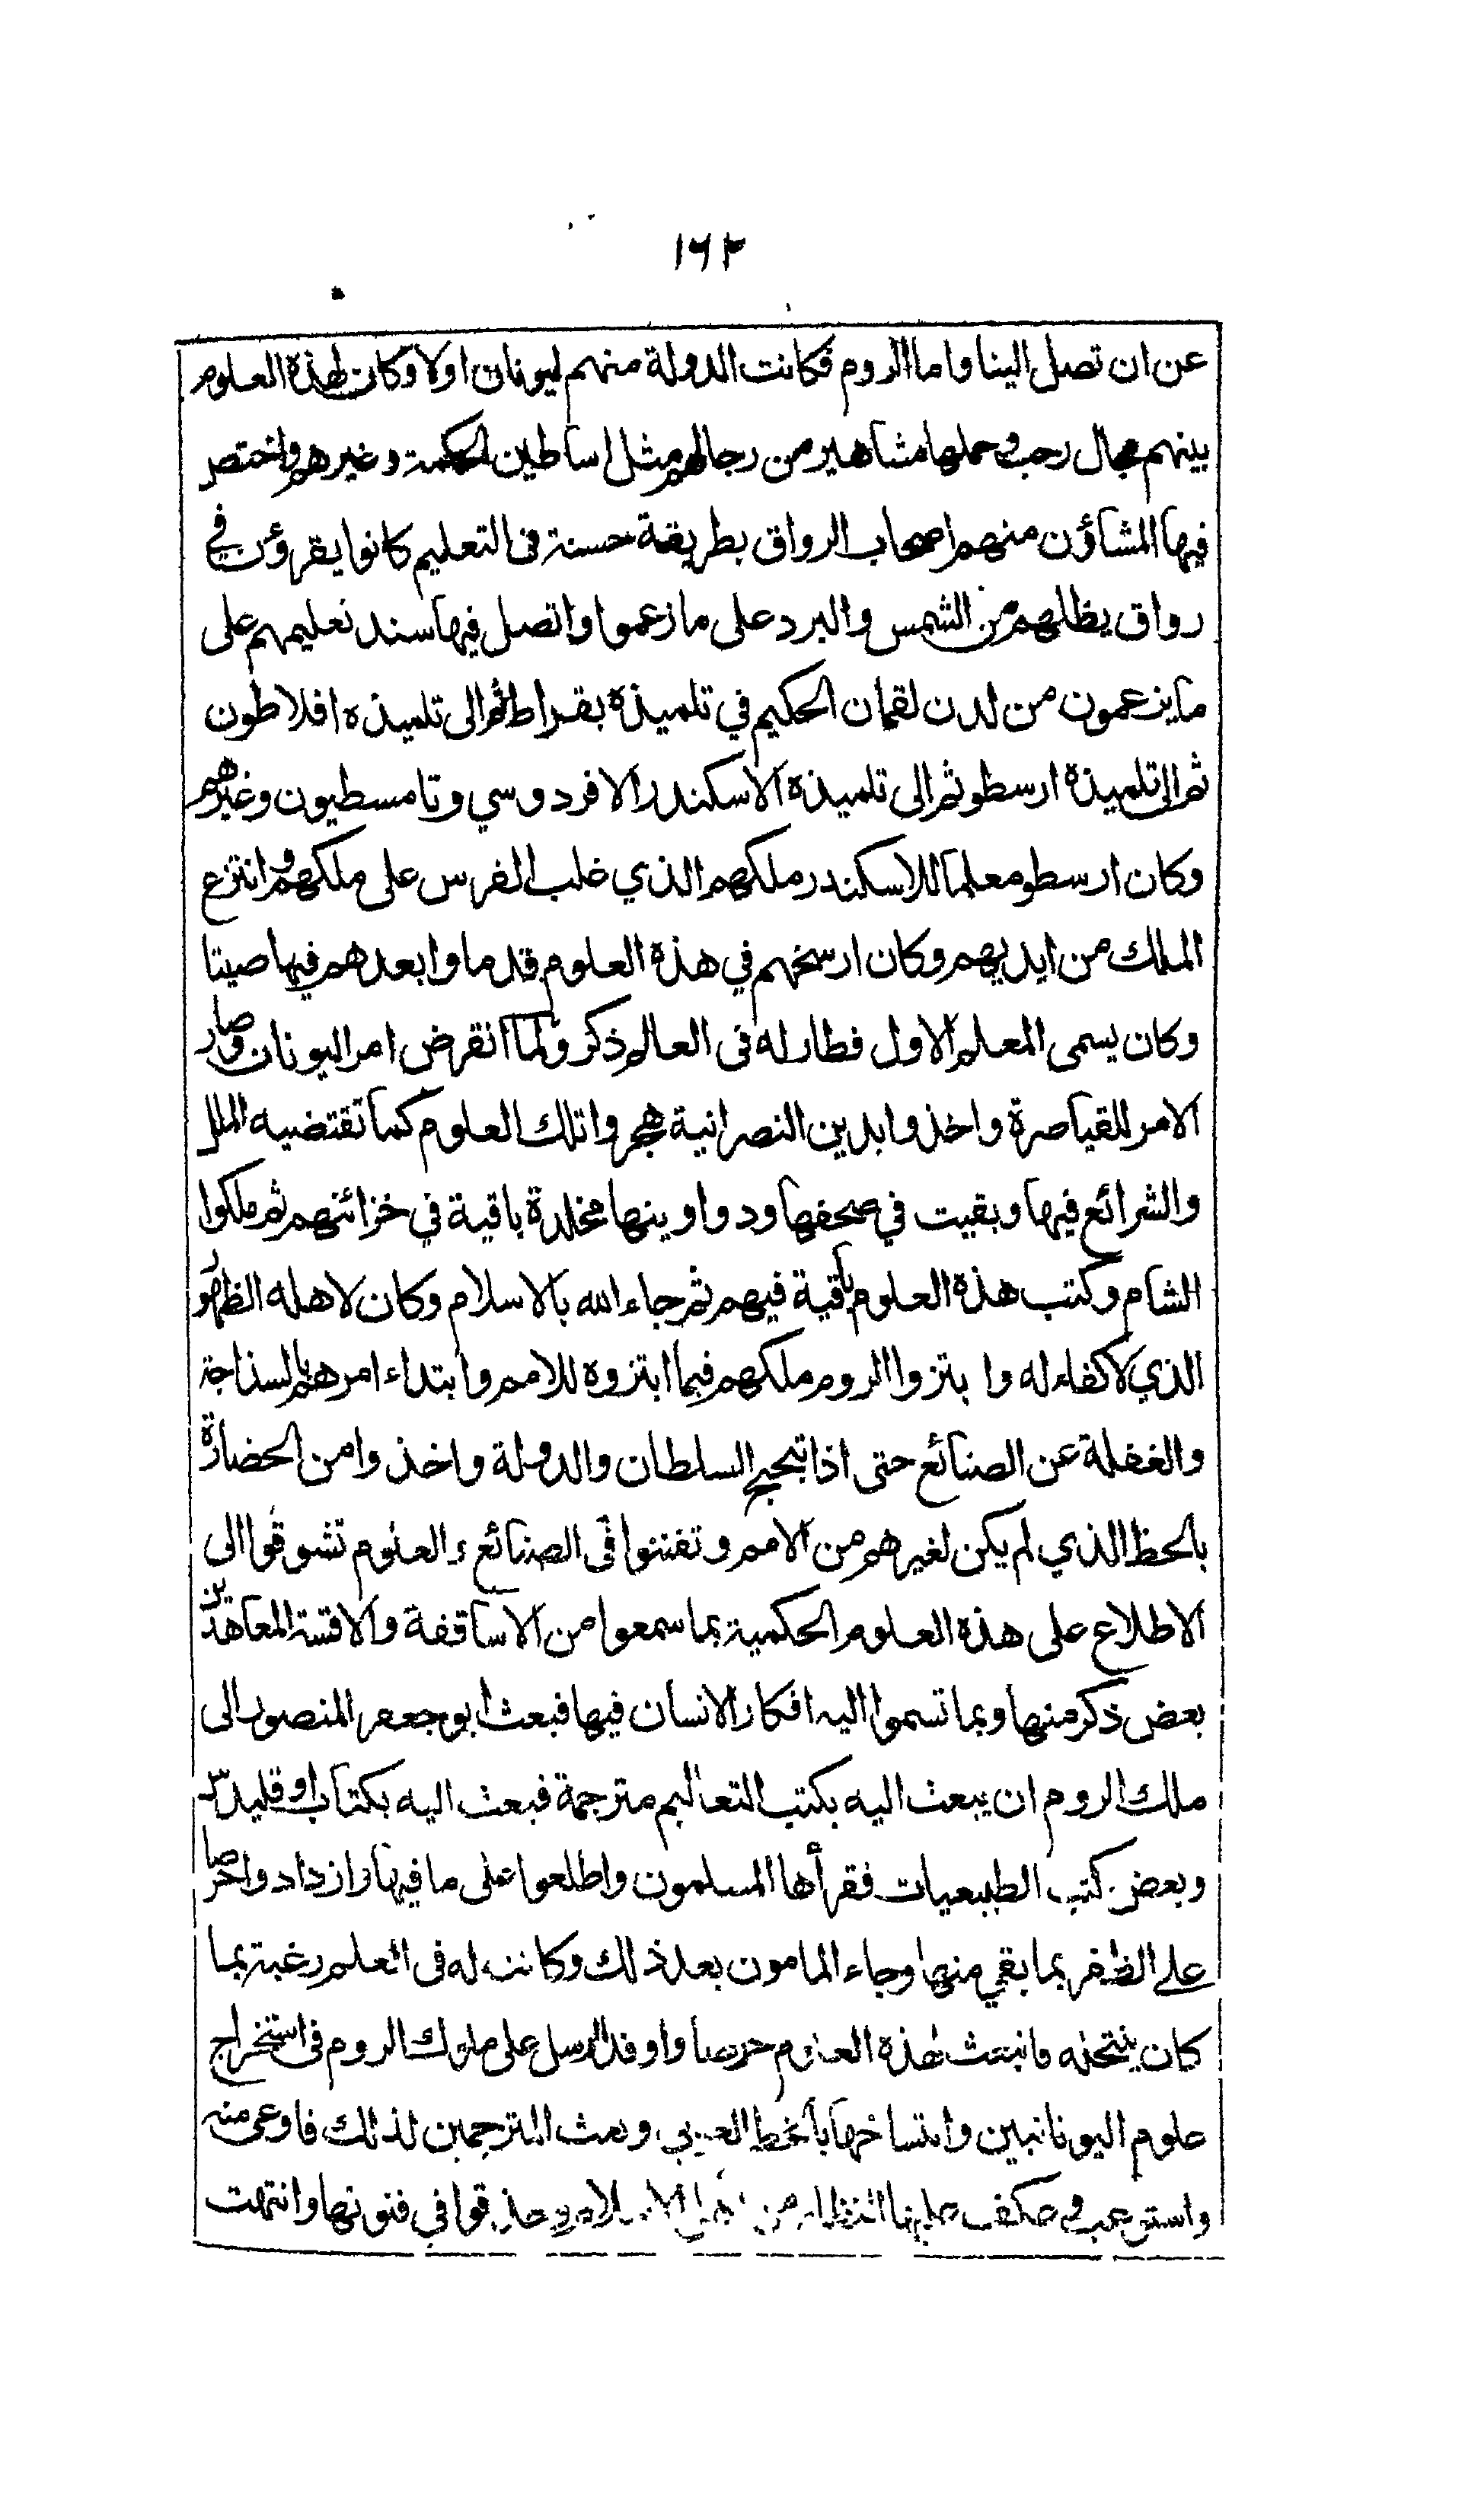 ١٦٢
عن ان تصل الينا واما الروم فكانت الدولة منهم ليونان اولا وكان لهذه العلوم
بينهم مجال رحب وحملها مشاهير من رجالهم مثل اساطين الحكمة وغيرهم واختصر
فيها المشاؤن منهم اصحاب الرواق بطريقة حسنة فى التعليم كانوا يقرؤن في
رواق يظلهم من الشمس والبرد على ما زعموا واتصل فيها سند تعليمهم على
ما يزعمون من لدن لقمان الحكيم في تلميذه بقراط ثم الى تلميذه افلاطون
ثم الى تلميذه ارسطو ثم الى تلميذه الاسكندر الافردوسي وتامسطيون وغيرهم
وكان ارسطو معلما للاسكندر ملكهم الذي غلب الفرس على ملكهم وانتزع
الملك من ايديهم وكان ارسخهم في هذه العلوم قدما وابعدهم فيها صيتا
وكان يسمى المعلم الاول فطار له فى العالم ذكر ولما انقرض امر اليونان وصار
الامر للقياصرة واخذوا بدين النصرانية هجروا تلك العلوم كما تقتضيه الملل
والشرائع فيها وبقيت في صحفها ودواوينها مخلدة باقية في خزائنهم ثم ملكوا
الشام وكتب هذه العلوم باقية فيهم ثم جاء الله بالاسلام وكان لاهله الظهور
الذي لا كفاء له وابتزوا الروم ملكهم فيما ابتزوه للامم وابتداء امرهم بالسذاجة
والغفلة عن الصنائع حتى اذا تبحبح السلطان والدولة واخذوا من الحضارة
بالحظ الذي لم يكن لغيرهم من الامم وتفننوا فى الصنائع والعلوم تشوقوا الى
الاطلاع على هذه العلوم الحكمية بما سمعوا من الاساقفة والاقسة المعاهدين
بعض ذكر منها وبما تسموا اليه افكار الانسان فيها فبعث ابو جعفر المنصور الى
ملك الروم ان يبعث اليه بكتب التعاليم مترجمة فبعث اليه بكتاب اوقليدس
وبعض كتب الطبيعيات فقرأها المسلمون واطلعوا على ما فيها وازدادوا حرصا
على الظفر بما بقي منها وجاء المامون بعد ذلك وكانت له فى العلم رغبة بما
كان ينتحله فانبعث لهذه العلوم حرصا واوفد الرسل على ملوك الروم فى استخراج
علوم اليونانيين وانتساخها بالخط العربي وبعث المترجمين لذلك فاوعى منه
واستوعب وعكف عليها النظار من اهل الاسلام وحذقوا في فنونها وانتهت